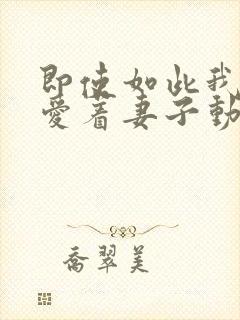 即使如此我
愛着妻子動
喬翠美